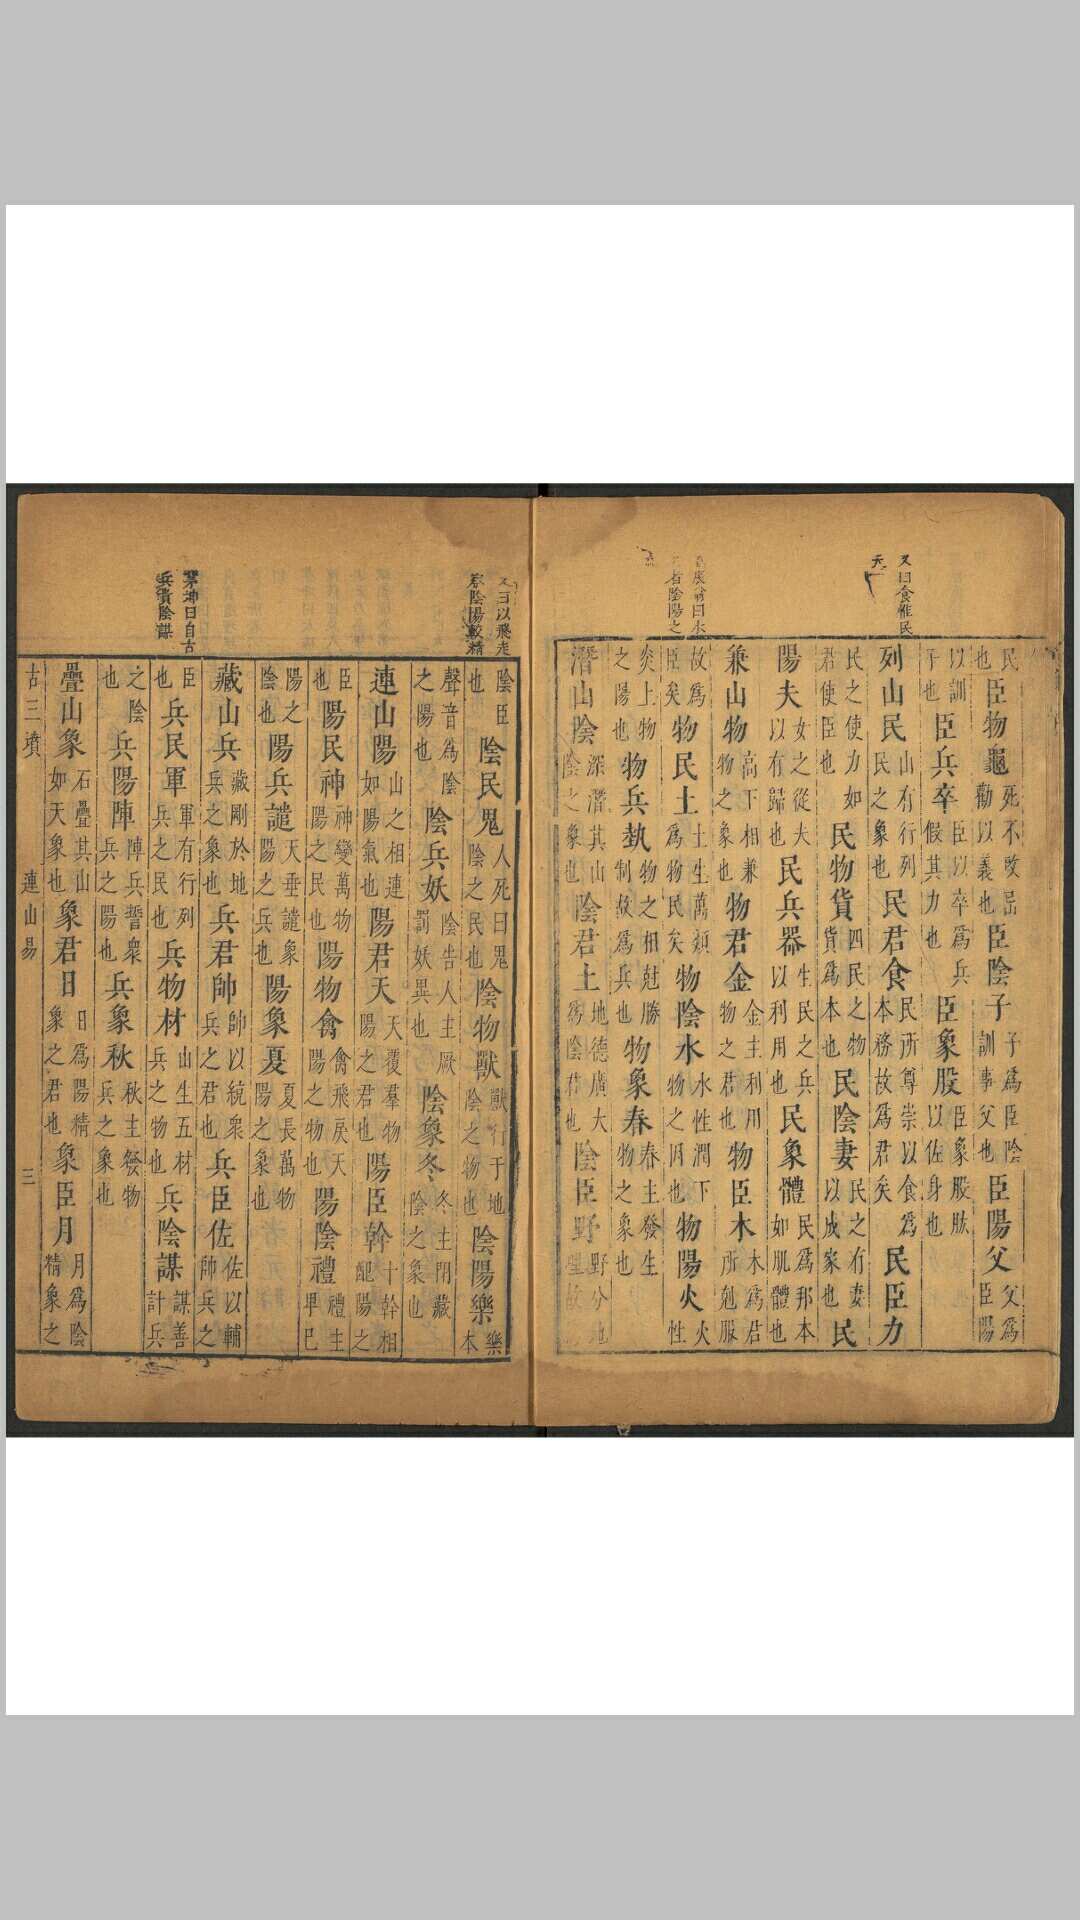 又曰食惟民
天
民也臣物龜死不改邑勸以義也臣陰子子爲臣陰訓事父也臣陽父父爲臣陽
以訓子也臣兵卒臣以卒爲兵假其力也臣象股臣象股肱以佐身也
列山民山有行列民之象也民君食民所尊崇以食爲本務故爲君矣民臣力
民之使力如君使臣也民物貨四民之物貨爲本也民陰妻民之有妻以成家也民
陽夫女之從夫以有歸也民兵器生民之兵以利用也民象體民爲邦本如肌體也
兼山物高下相兼物之象也物君金金主利用物之君也物臣木木爲君所剋服
故爲臣矣物民土土生萬類爲物民矣物陰水水性潤下物之陰也物陽火火性
炎上物之陽也物兵執物之相尅勝制故爲兵也物象春春主發生物之象也
潛山陰深潛其山陰之象也陰君土地德廣大爲陰君也陰臣野野分地理故
又曰以飛走
陰陽較精
陰臣也陰民鬼人死曰鬼陰之民也陰物獸獸行于地陰之物也陰陽樂樂本
聲音爲陰之陽也陰兵妖陰告人主厥罰妖異也陰象冬冬主閉藏陰之象也
連山陽山之相連如陽氣也陽君天天覆羣物陽之君也陽臣幹十幹相配陽之
臣也陽民神神變萬物陽之民也陽物禽禽飛戾天陽之物也陽陰禮禮主卑巳
陽之陰也陽兵譴天垂譴象陽之兵也陽象夏夏長萬物陽之象也
藏山兵藏剛於地兵之象也兵君帥帥以統衆兵之君也兵臣佐佐以輔帥兵之
臣也兵民軍軍有行列兵之民也兵物材山生五材兵之物也兵陰謀謀善計兵
之陰也兵陽陣陣兵誓衆兵之陽也兵象秋秋主發物兵之象也
疊山象石疊其山如天象也象君日日爲陽精象之君也象臣月月爲陰精象之
茅坤曰自古
兵貴陰謀
古三墳 連山易 三